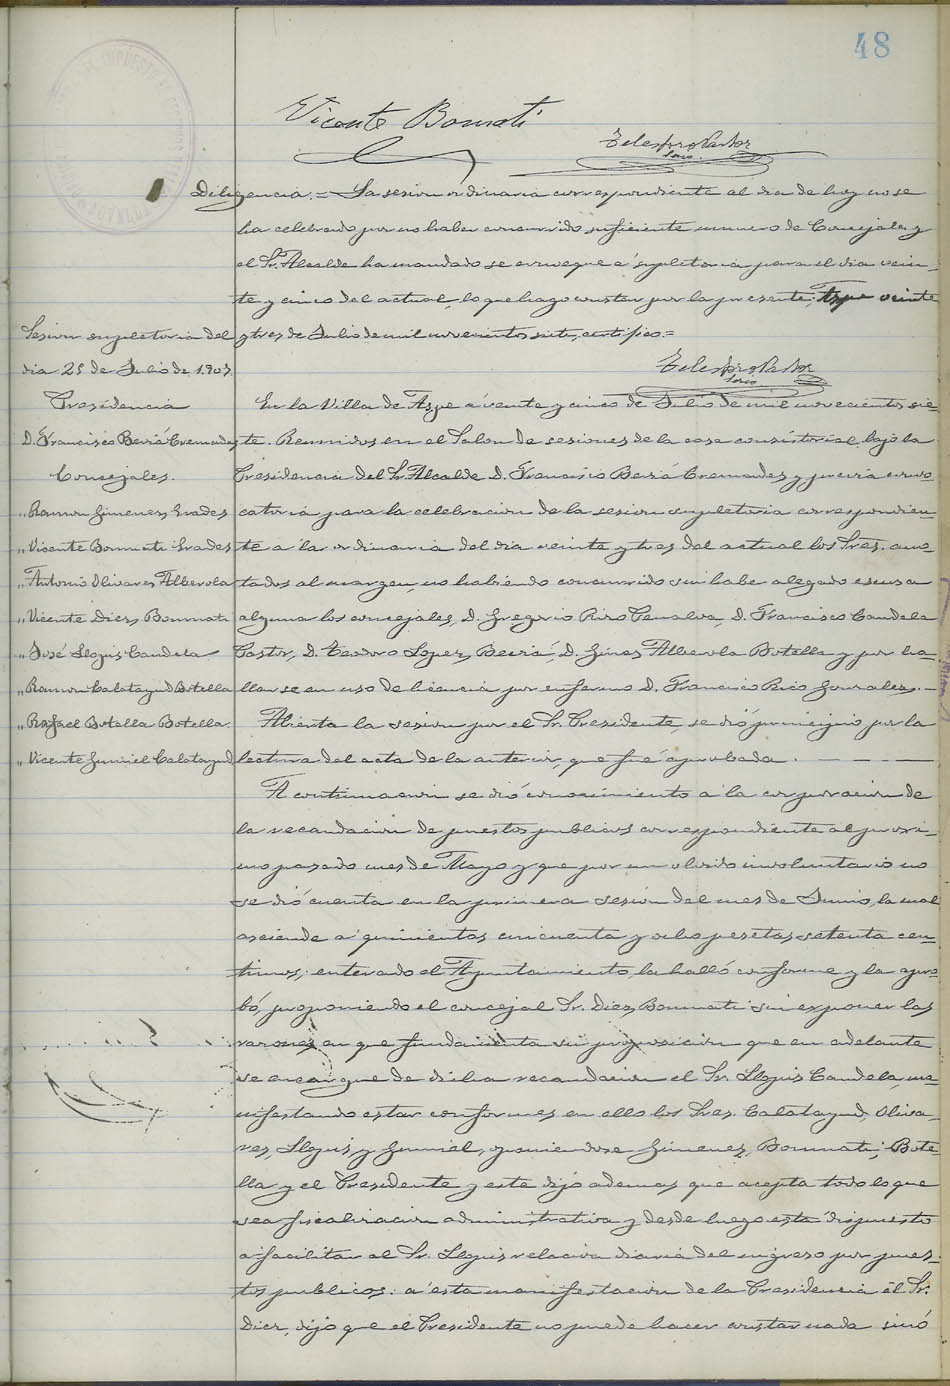 48
Vicente Bonmati
Telesforo Pastor
Srio.
Diligencia.= La sesion ordinaria correspondiente al dia de hoy no se
ha celebrado por no haber concurrido suficiente numero de Concejales y
el Sr. Alcalde ha mandado se convoque a supletoria para el dia vein-
te y cinco del actual, lo que hago constar por la presente, Aspe veinte
y tres de Julio de mil novecientos siete, certifico=
Telesforo Pastor
Srio
Sesion supletoria del
dia 25 de Julio de 1.907
Presidencia
D. Francisco Berná Cremades
Concejales.
" Ramon Gimenez Prades
" Vicente Bonmati Prades
" Antonio Olivares Alberola
" Vicente Diez Bonmati
" José Llopis Candela
" Ramon Calatayud Botella
" Rafael Botella Botella.
" Vicente Gumiel Calatayud
En la Villa de Aspe a vente y cinco de Julio de mil novecientos sie-
te. Reunidos en el Salon de sesiones de la casa consistorial, bajo la
Presidencia del Sr. Alcalde D. Francisco Berná Cremades y previa convo
catoria para la celebracion de la sesion supletoria correspondien-
te a la ordinaria del dia veinte y tres del actual los Sres. ano-
tados al margen, no habiendo concurrido sin haber alegado escusa
alguna los concejales, D. Gregorio Puro Penalva, D. Francisco Candela
Pastor, D. Teodoro Lopez Berná, D. Gines Alberola Botella y por ha-
llarse en uso de licencia por enfermo D. Francisco Rico Gonzalez.—
Abierta la sesion por el Sr. Presidente, se dió principio por la
lectura del acta de la anterior, que fué aprobada. — — — —
A continuacion se dió conocimiento a la corporacion de
la recaudacion de puestos publicos correspondiente al proxi-
mo pasado mes de Mayo y que por un olvido involuntario no
se dió cuenta en la primera sesion del mes de Junio, la cual
asciende a quinientos cincuenta y ocho pesetas setenta cen-
timos; enterado el Ayuntamiento, la halló conforme y la apro-
bó, proponiendo el concejal Sr. Diez Bonmati sin exponer las
razones en que fundamenta su proposicion que en adelante
se encargue de dicha recaudacion el Sr. Llopis Candela, ma-
nifestando estar conformes en ello los Sres. Calatayud, Oliva-
res, Llopis, y Gumiel, oponiendose Gimenez, Bonmati, Bote-
lla y el Presidente y este dijo ademas que acepta todo lo que
sea fiscalizacion administrativa y desde luego está dispuesto
a facilitar al Sr. Llopis relacion diaria del ingreso por pues-
tos publicos: a esta manifestacion de la Presidencia el Sr.
Diez, dijo que el Presidente no puede hacer constar nada sinó